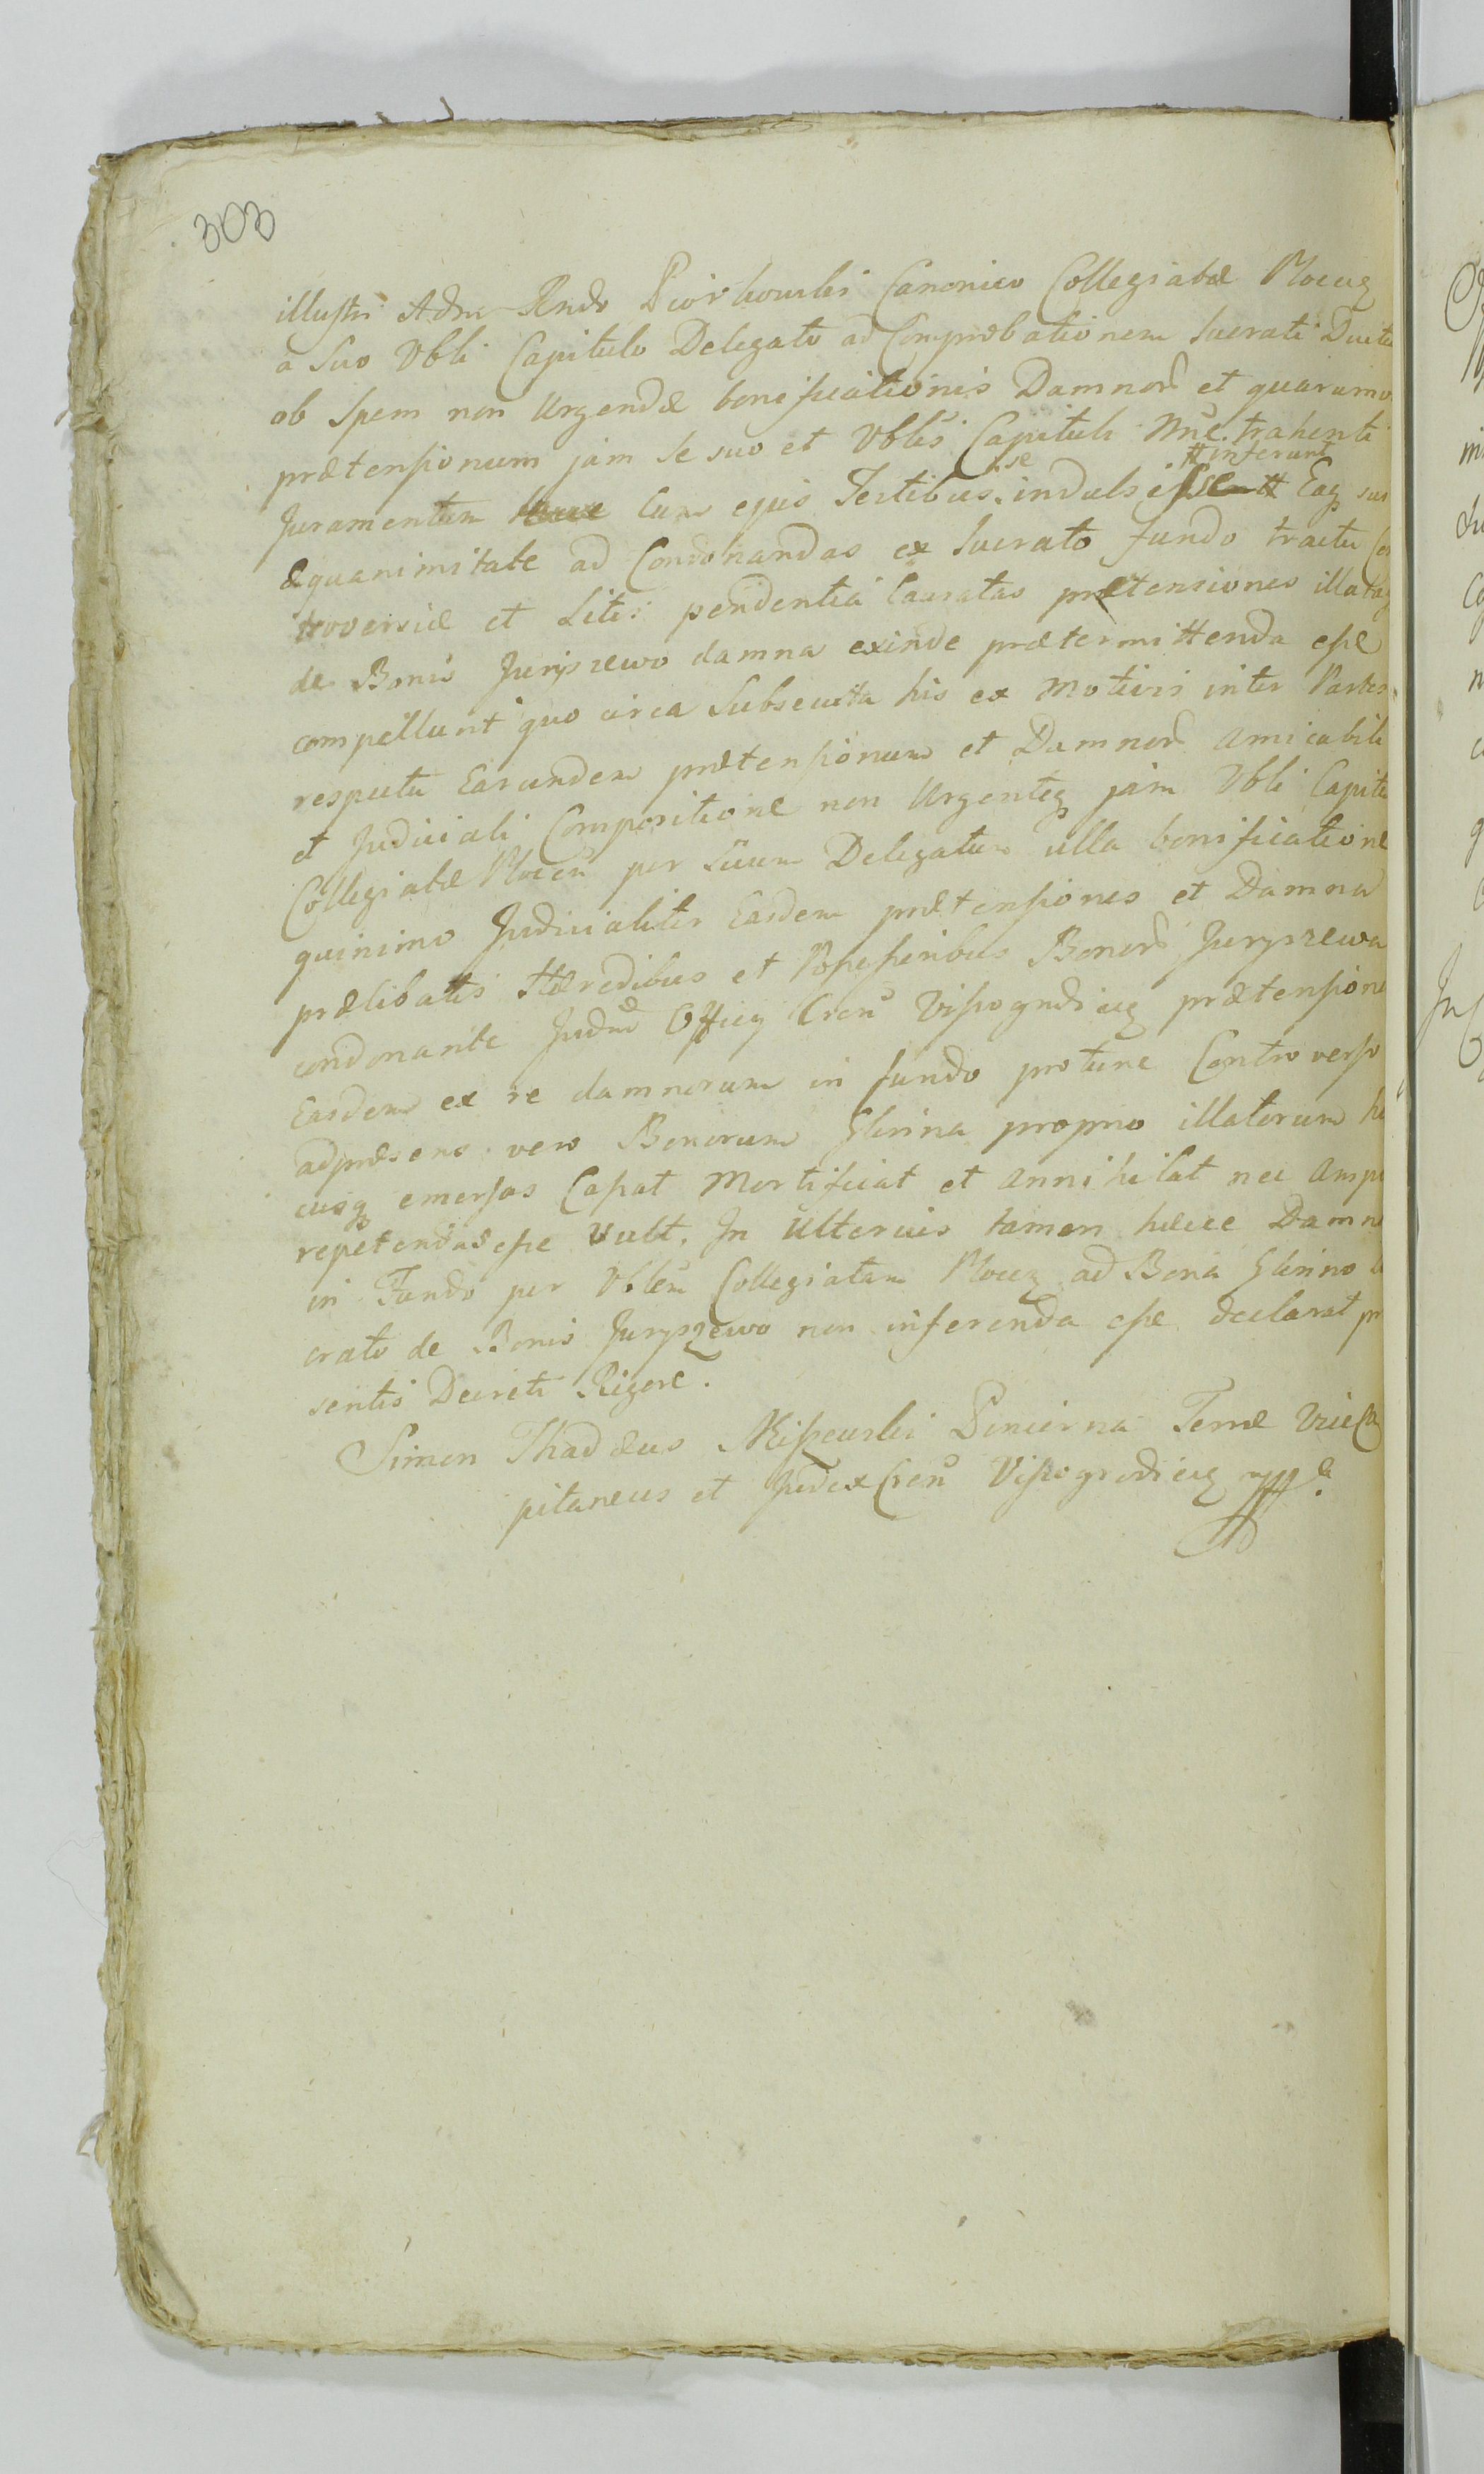 303
illustri Adm Rndo Piórkowski Canonico Collegiatæ Plocen
a suo Vbli Capitulo Delegato ad Comprobationem lucrati Ductu
ob Spem non Urgendæ bonificationis Damnor et quarum
prætensionum jam se suo et Vblis Capituli Nne. trahenti
se # inferunt
Juramentum Cum ejus Testibus. indulsisse # Eaq sua
Æquanimitate ad Condonandas ex lucrato fundo tractu Con
troversiæ et Litis pendentia Causatas prætensiones illataq
de Bonis Juryszewo damna exinde prætermittenda esse
compellunt quo circa Subsecuta his ex Motivis inter Partes
respectu Earundem prætensionum et Damnor Amicabili
et Judiciali Compositione non Urgenteq jam Vbli Capitu
Collegiatæ Plocen per Suum Delegatum ulla bonificatione
quinimo Judicialiter Easdem prætensiones et Damna
prælibatis Hæredibus et Possessoribus Bonor Juryszewa
condonante Judm Officy Cren Vissogrodien prætensione
Easdem ex re damnorum in fundo protunc Controverso
adpræsens vero Bonorum Glinna proprio illatorum hu
cusq emersas Cassat Mortificat et annihilat nec amp
repetendas esse Vult. In ulterius tamen hæcce Damna
in Fundo per Vblem Collegiatam Plocen ad Bona Glinno lu
crato de Bonis Juryszewo non inferenda esse declarat præ
sentis Decreti Rigore.
Simon Thaddæus Pincerna Terræ ViceCa
pitaneus et Judex Cren Vissogrodien